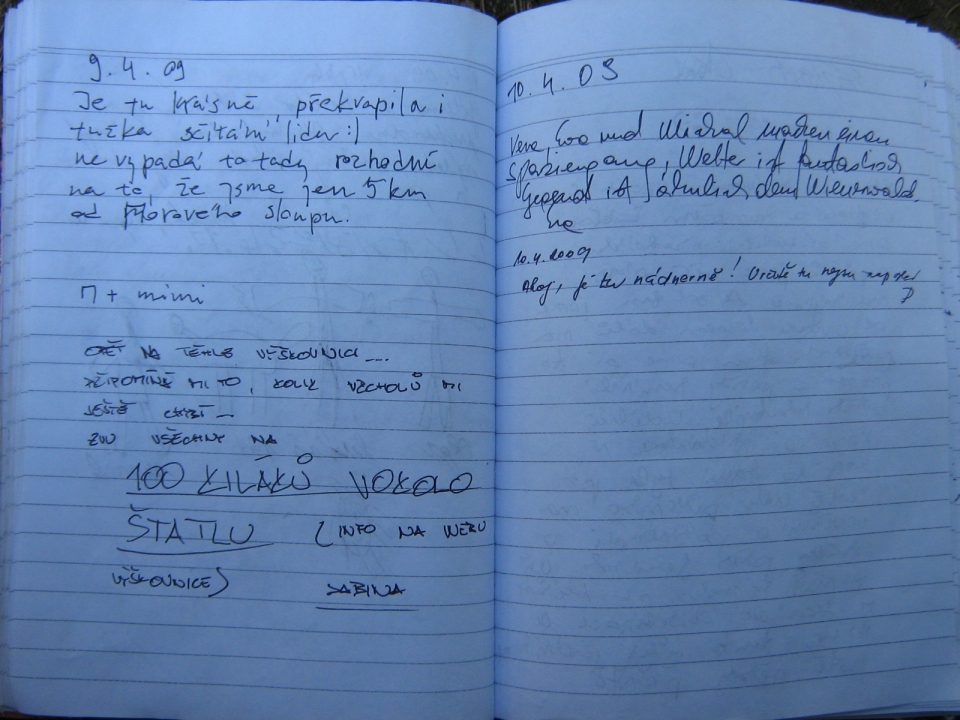 9.4.09
Je tu krásně, překvapila i
tužka sčítání lidu :)
nevypadá to tady rozhodně
na to, že jsme jen 5 km
od Morového sloupu.
M + mimi
OPĚT NA TÉHLE VÝŠKOVNICI ...
PŘIPOMÍNÁ MI TO, KOLIK VRCHOLŮ MI
JEŠTĚ CHYBÍ ...
ZVU VŠECHNY NA
100 KILÁKŮ VOKOLO
ŠTATLU (INFO NA WEBU
VÝŠKOVNICE)
SABINA
10.4.09
Vera, Eva und Michal machen einen
Spaziergang, Wetter ist fantastisch
Gegend ist ähnlich dem Wienerwald.
10.4.2009
Ahoj, je tu nádherně! Určitě tu nejsu